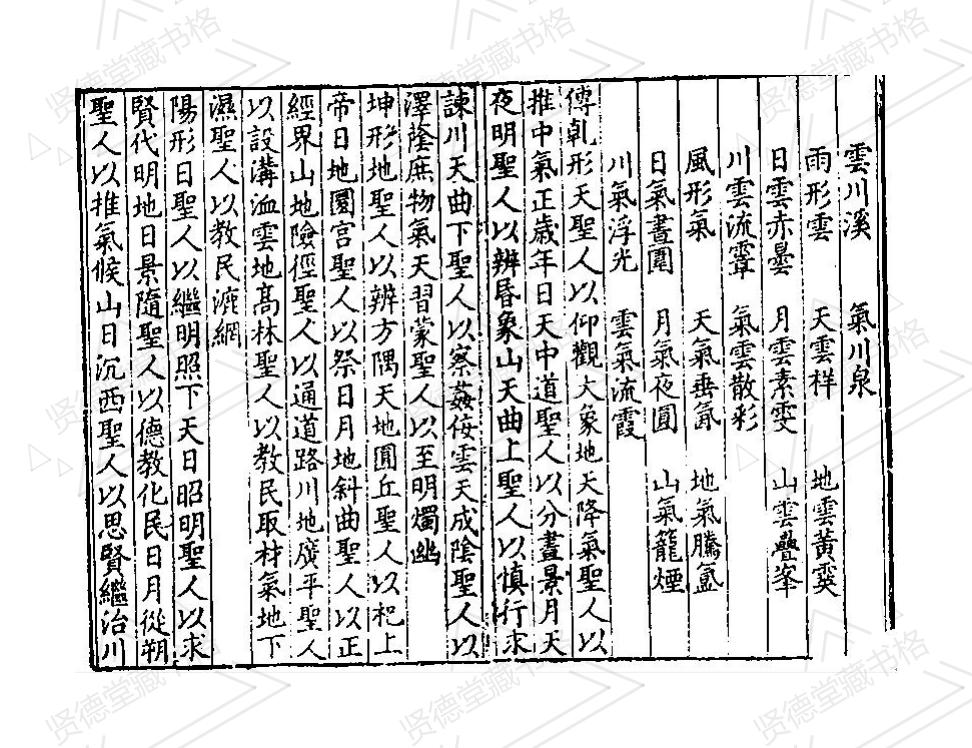 雲川溪 氣川泉
雨形雲 天雲祥 地雲黃霙
日雲赤曇 月雲素雯 山雲疊峯
川雲流霃 氣雲散彩
風形氣 天氣垂氤 地氣騰氳
日氣晝圍 月氣夜圓 山氣籠煙
川氣浮光 雲氣流霞
傳乹形天聖人以仰觀大象地天降氣聖人以
推中氣正歲年日天中道聖人以分晝晷月天
夜明聖人以辨昏象山天曲上聖人以慎行求
諫川天曲下聖人以察姦侫雲天成陰聖人以
澤蔭庶物氣天習蒙聖人以至明燭幽
坤形地聖人以辨方隅天地圓丘聖人以祀上
帝日地圜宫聖人以祭日月地斜曲聖人以正
經界山地險徑聖人以通道路川地廣平聖人
以設溝洫雲地髙林聖人以教民取材氣地下
濕聖人以教民漉網
陽形日聖人以繼明照下天日昭明聖人以求
賢代明地日景隨聖人以德教化民日月從朔
聖人以推氣候山日沉西聖人以思賢繼治川
贤德堂藏书格